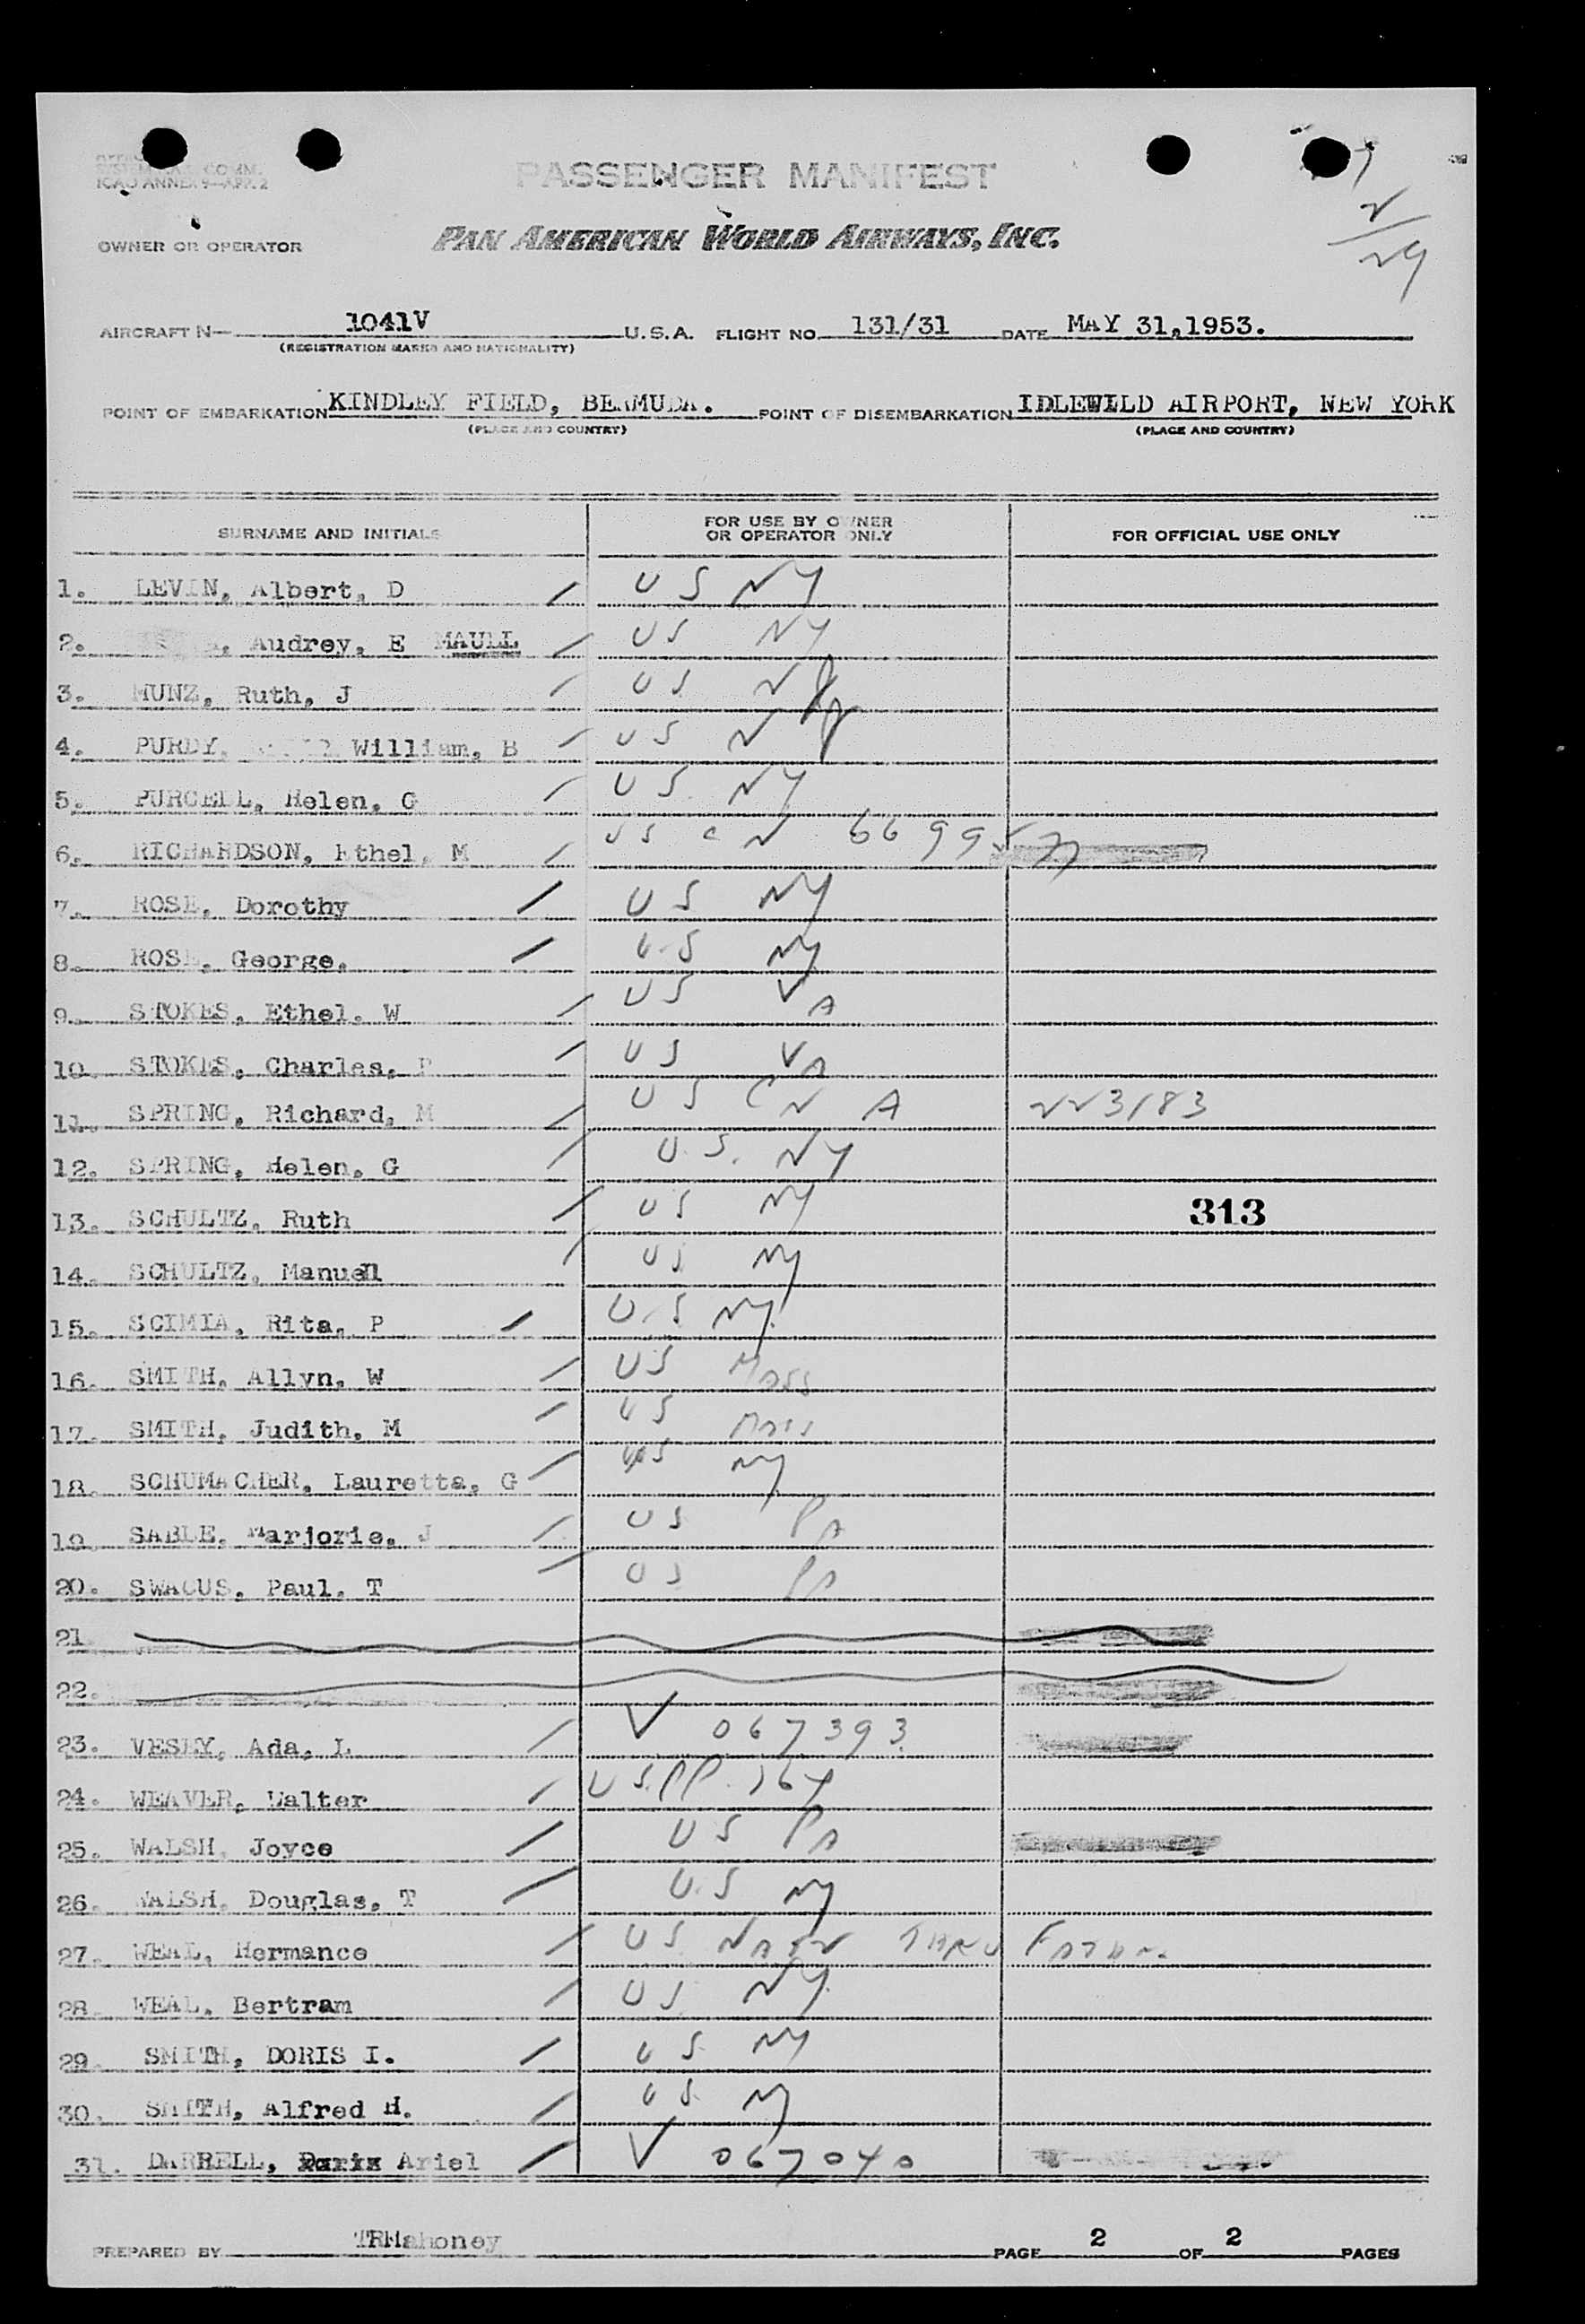 ICAO ANNEX 9—APP. 2
PASSENGER MANIFEST
OWNER OR OPERATOR PAN AMERICAN WORLD AIRWAYS, INC.
2/29
AIRCRAFT N— 1041V U.S.A. FLIGHT NO. 131/31 DATE MAY 31,1953.
(REGISTRATION MARKS AND NATIONALITY)
POINT OF EMBARKATION KINDLEY FIELD, BERMUDA. POINT OF DISEMBARKATION IDLEWILD AIRPORT, NEW YORK
(PLACE AND COUNTRY) (PLACE AND COUNTRY)
SURNAME AND INITIALS FOR USE BY OWNER OR OPERATOR ONLY FOR OFFICIAL USE ONLY
1. LEVIN, Albert, D / US NY
2. Audrey, E MAULL / US NY
3. MUNZ, Ruth, J / US NY
4. PURDY, William, B / US NY
5. PURCELL, Helen, G / US NY
6. RICHARDSON, Ethel, M / US CN
7. ROSE, Dorothy / US NY
8. ROSE, George. / US NY
9. STOKES, Ethel, W / US VA
10. STOKES, Charles, P / US VA
11. SPRING, Richard, M / US CN A 223183
12. SPRING, Helen, G / U.S. NY
13. SCHULTZ, Ruth / US NY 313
14. SCHULTZ, Manuel / US NY
15. SCIMIA, Rita, P / US NY
16. SMITH, Allyn, W / US MASS
17. SMITH, Judith, M / US MASS
18. SCHUMACHER, Lauretta, G / US NY
19. SABLE, Marjorie, J / US PA
20. SWACUS, Paul, T / US PA
21.
22.
23. VESEY, Ada, L / V 067393
24. WEAVER, Walter / US PP 164
25. WALSH, Joyce / US PA
26. WALSH, Douglas, T / US NY
27. WEAL, Hermance / US NATN THRU FATHER
28. WEAL, Bertram / US NY
29. SMITH, DORIS I. / US NY
30. SMITH, Alfred H. / US NY
31. DARRELL, Ariel / V 067040
PREPARED BY TRMahoney PAGE 2 OF 2 PAGES